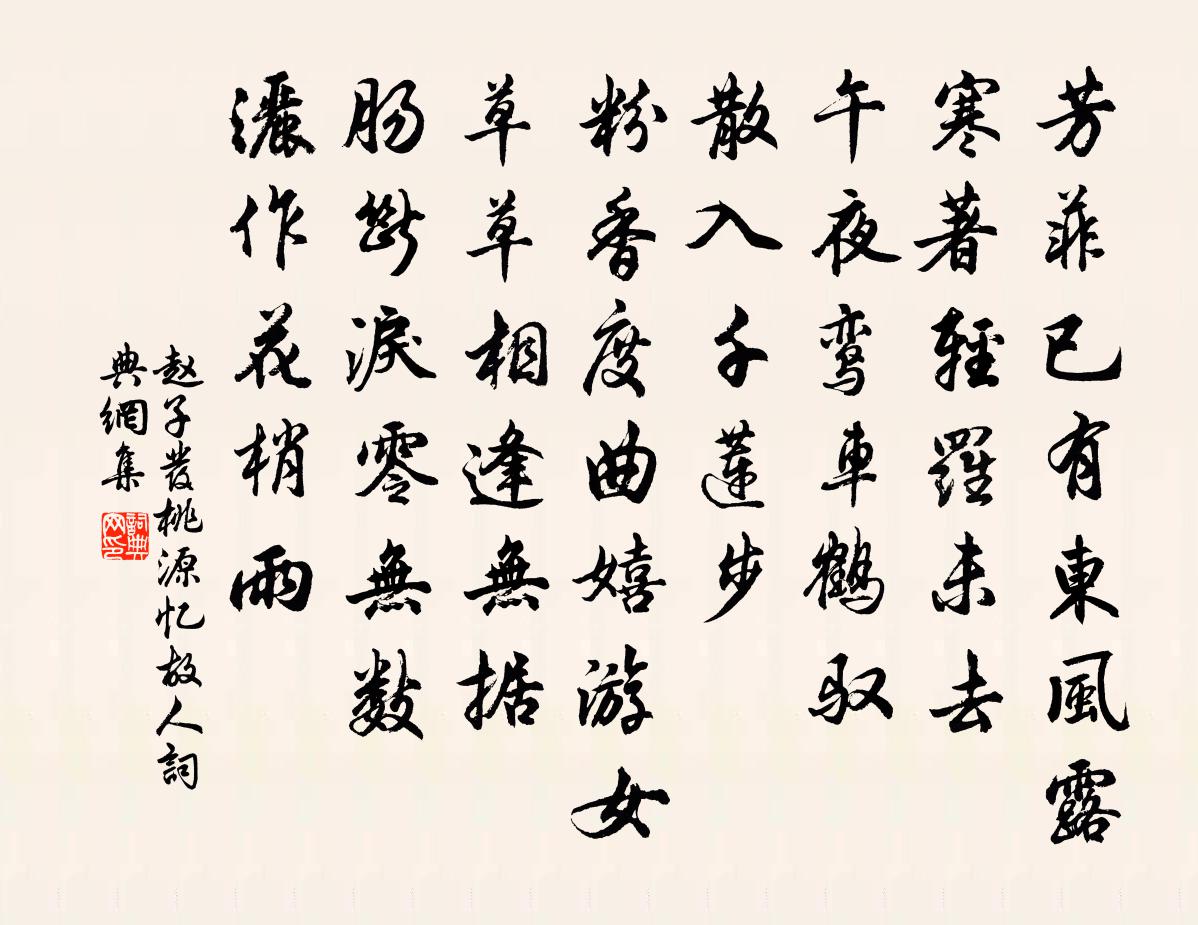 芳菲已有東風露
寒著輕羅未去
午夜鸾車鶴驭
散入千蓮步
粉香度曲嬉游女
草草相逢無据
肠斷淚零無數
灑作花梢雨
赵子發桃源忆故人詞
典網集
詞典
网印